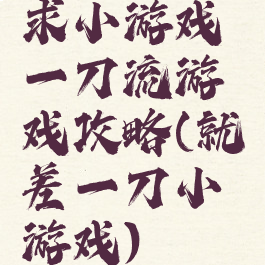 求小游戏
一刀流游
戏攻略(就
差一刀小
游戏)